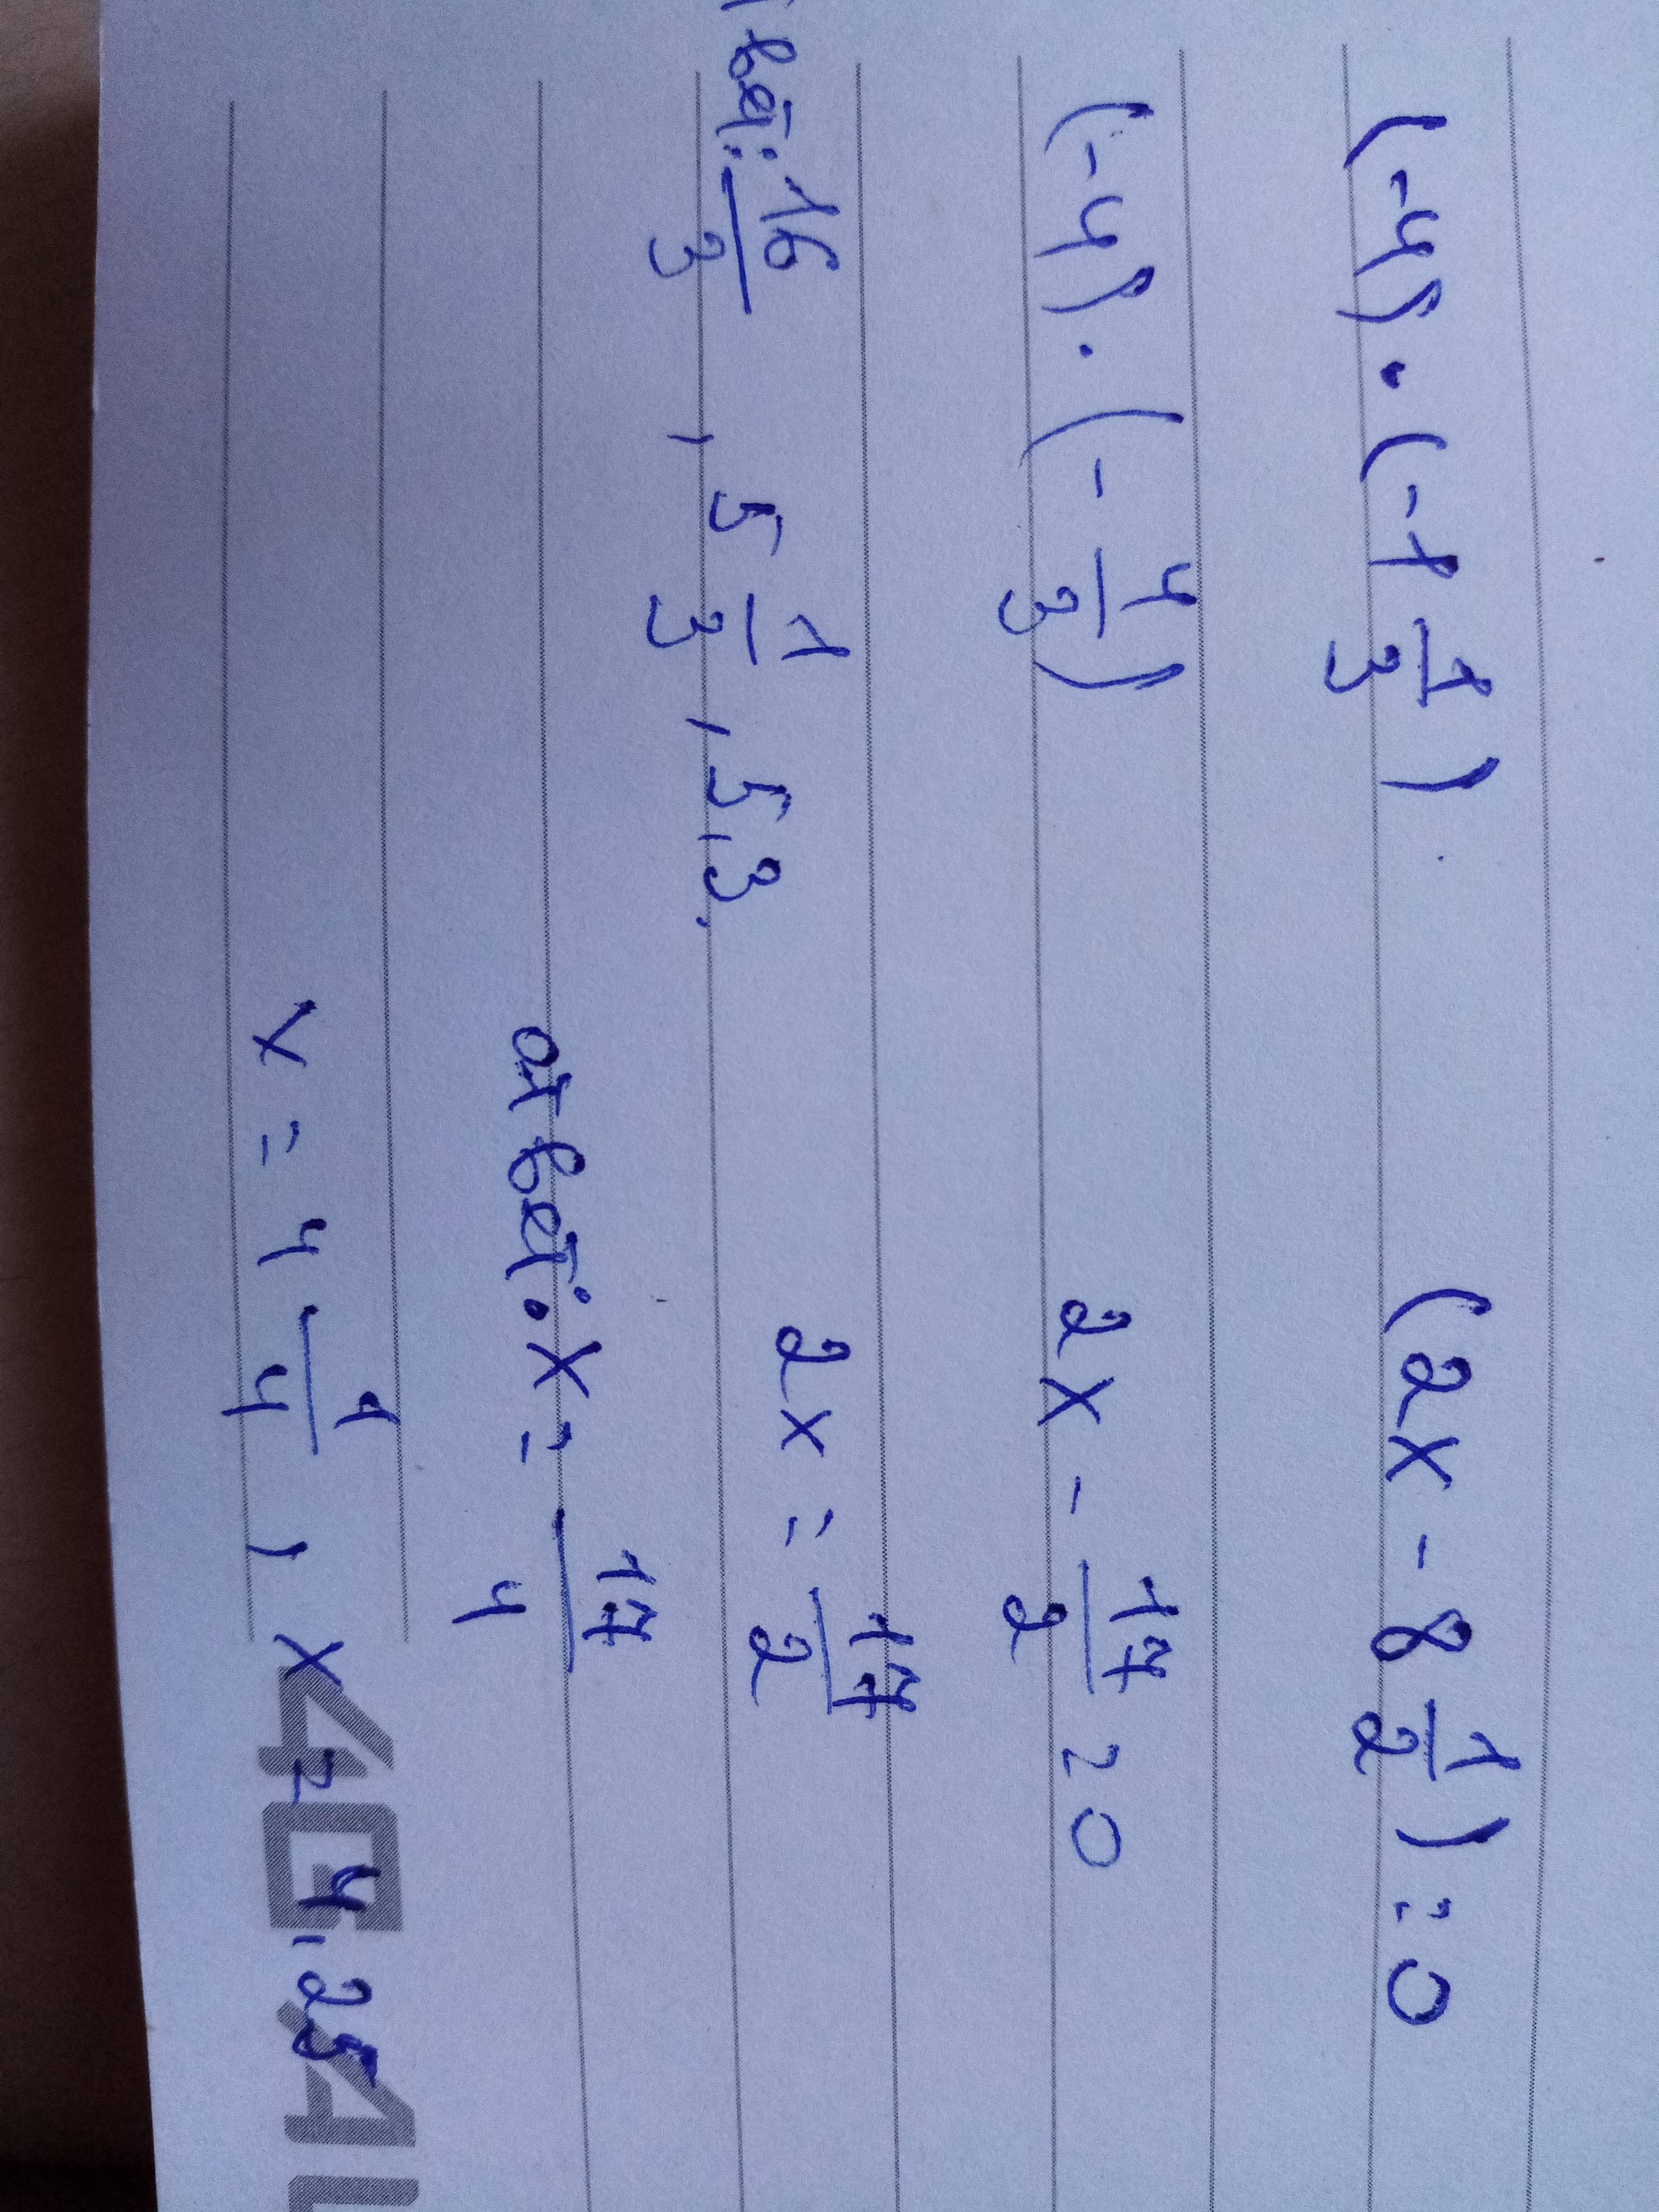 (-4)·(-1 1/3)
(-4)·(-4/3)
16/3, 5 1/3, 5,3.
(2x - 8 1/2) = 0
2x - 17/2 = 0
2x = 17/2
ответ: x = 17/4
x = 4 1/4, x = 4,25
4G